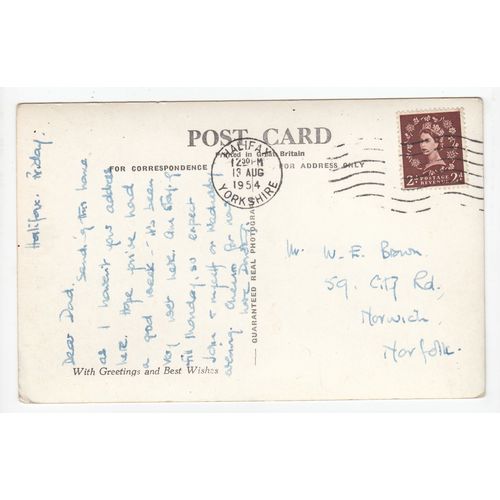 POST CARD
Printed in Great Britain
FOR CORRESPONDENCE
FOR ADDRESS ONLY
HALIFAX
12 30 PM
13 AUG
1954
YORKSHIRE
2D POSTAGE REVENUE 2D
GUARANTEED REAL PHOTOGRAPH
Halifax. Friday.
Dear Dad. Sending this home
as I haven't your address
here. Hope you've had
a good week - it's been
very wet here. Am staying
till Monday, so expect
John & myself on Wednesday
evening. Cheerio for now
love
Mr. W. E. Brown.
59. City Rd,
Norwich.
Norfolk.
With Greetings and Best Wishes